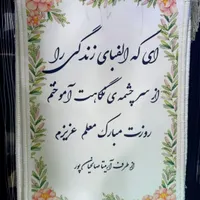 ای که الفبای زندگی را
از سرچشمه‌ی نگاهت آموختم
روزت مبارک معلم عزیزم
از طرف آریتا صالحیان پور